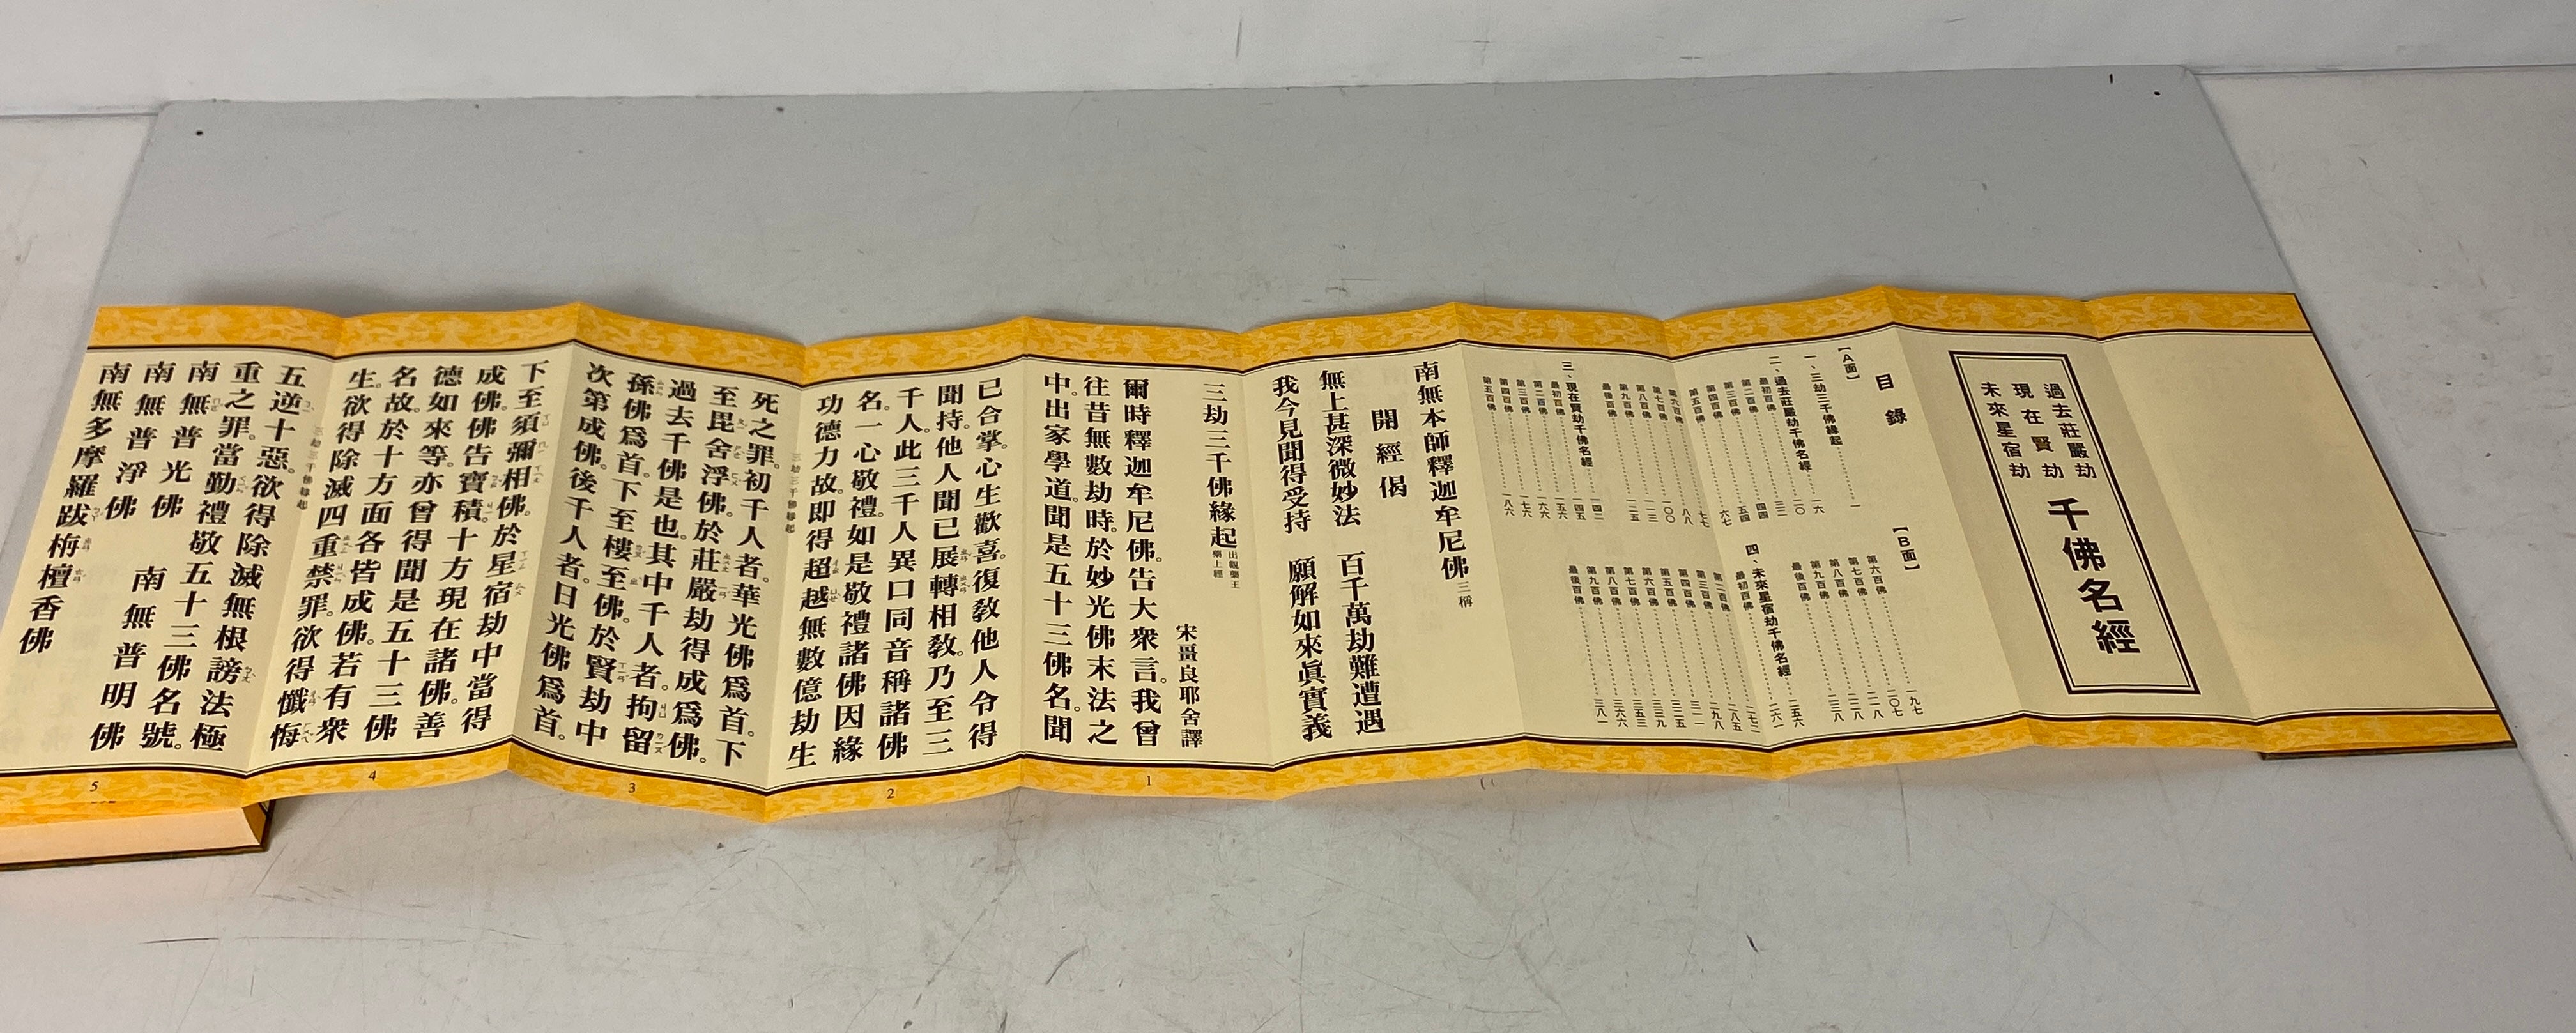 過去莊嚴劫
現在賢劫
未來星宿劫
千佛名經
目錄
【A面】
一、三劫三千佛緣起 一
二、過去莊嚴劫千佛名經 一六
最初百佛 二〇
第二百佛 三二
第三百佛 四四
第四百佛 五四
第五百佛 六七
第六百佛 七七
第七百佛 八八
第八百佛 一〇〇
第九百佛 一一三
最後百佛 一二五
三、現在賢劫千佛名經 一四二
最初百佛 一四五
第二百佛 一五六
第三百佛 一六六
第四百佛 一七六
第五百佛 一八六
【B面】
第六百佛 一九七
第七百佛 二〇七
第八百佛 二一八
第九百佛 二二八
最後百佛 二三八
四、未來星宿劫千佛名經 二五六
最初百佛 二六一
第二百佛 二七二
第三百佛 二八五
第四百佛 二九八
第五百佛 三一一
第六百佛 三二五
第七百佛 三三九
第八百佛 三五三
第九百佛 三六六
最後百佛 三八一
南無本師釋迦牟尼佛 三稱
開經偈
無上甚深微妙法 百千萬劫難遭遇
我今見聞得受持 願解如來眞實義
三劫三千佛緣起 出觀藥王藥上經
宋畺良耶舍譯
爾時釋迦牟尼佛。告大衆言。我曾
往昔無數劫時。於妙光佛末法之
中。出家學道。聞是五十三佛名。聞
1
已合掌。心生歡喜。復敎他人令得
聞持。他人聞已。展轉相敎。乃至三
千人。此三千人異口同音稱諸佛
名。一心敬禮。如是敬禮諸佛因緣
功德力故。即得超越無數億劫生
2
三劫三千佛緣起
死之罪。初千人者。華光佛爲首。下
至毘舍浮佛。於莊嚴劫得成爲佛。
過去千佛是也。其中千人者。拘留
孫佛爲首。下至樓至佛。於賢劫中
次第成佛。後千人者。日光佛爲首。
3
下至須彌相佛。於星宿劫中當得
成佛。佛告寶積。十方現在諸佛。善
德如來等。亦曾得聞是五十三佛
名故。於十方面各皆成佛。若有衆
生。欲得除滅四重禁罪。欲得懺悔
4
三劫三千佛緣起
五逆十惡。欲得除滅無根謗法極
重之罪。當勤禮敬五十三佛名號。
南無普光佛 南無普明佛
南無普淨佛
南無多摩羅跋栴檀香佛
5